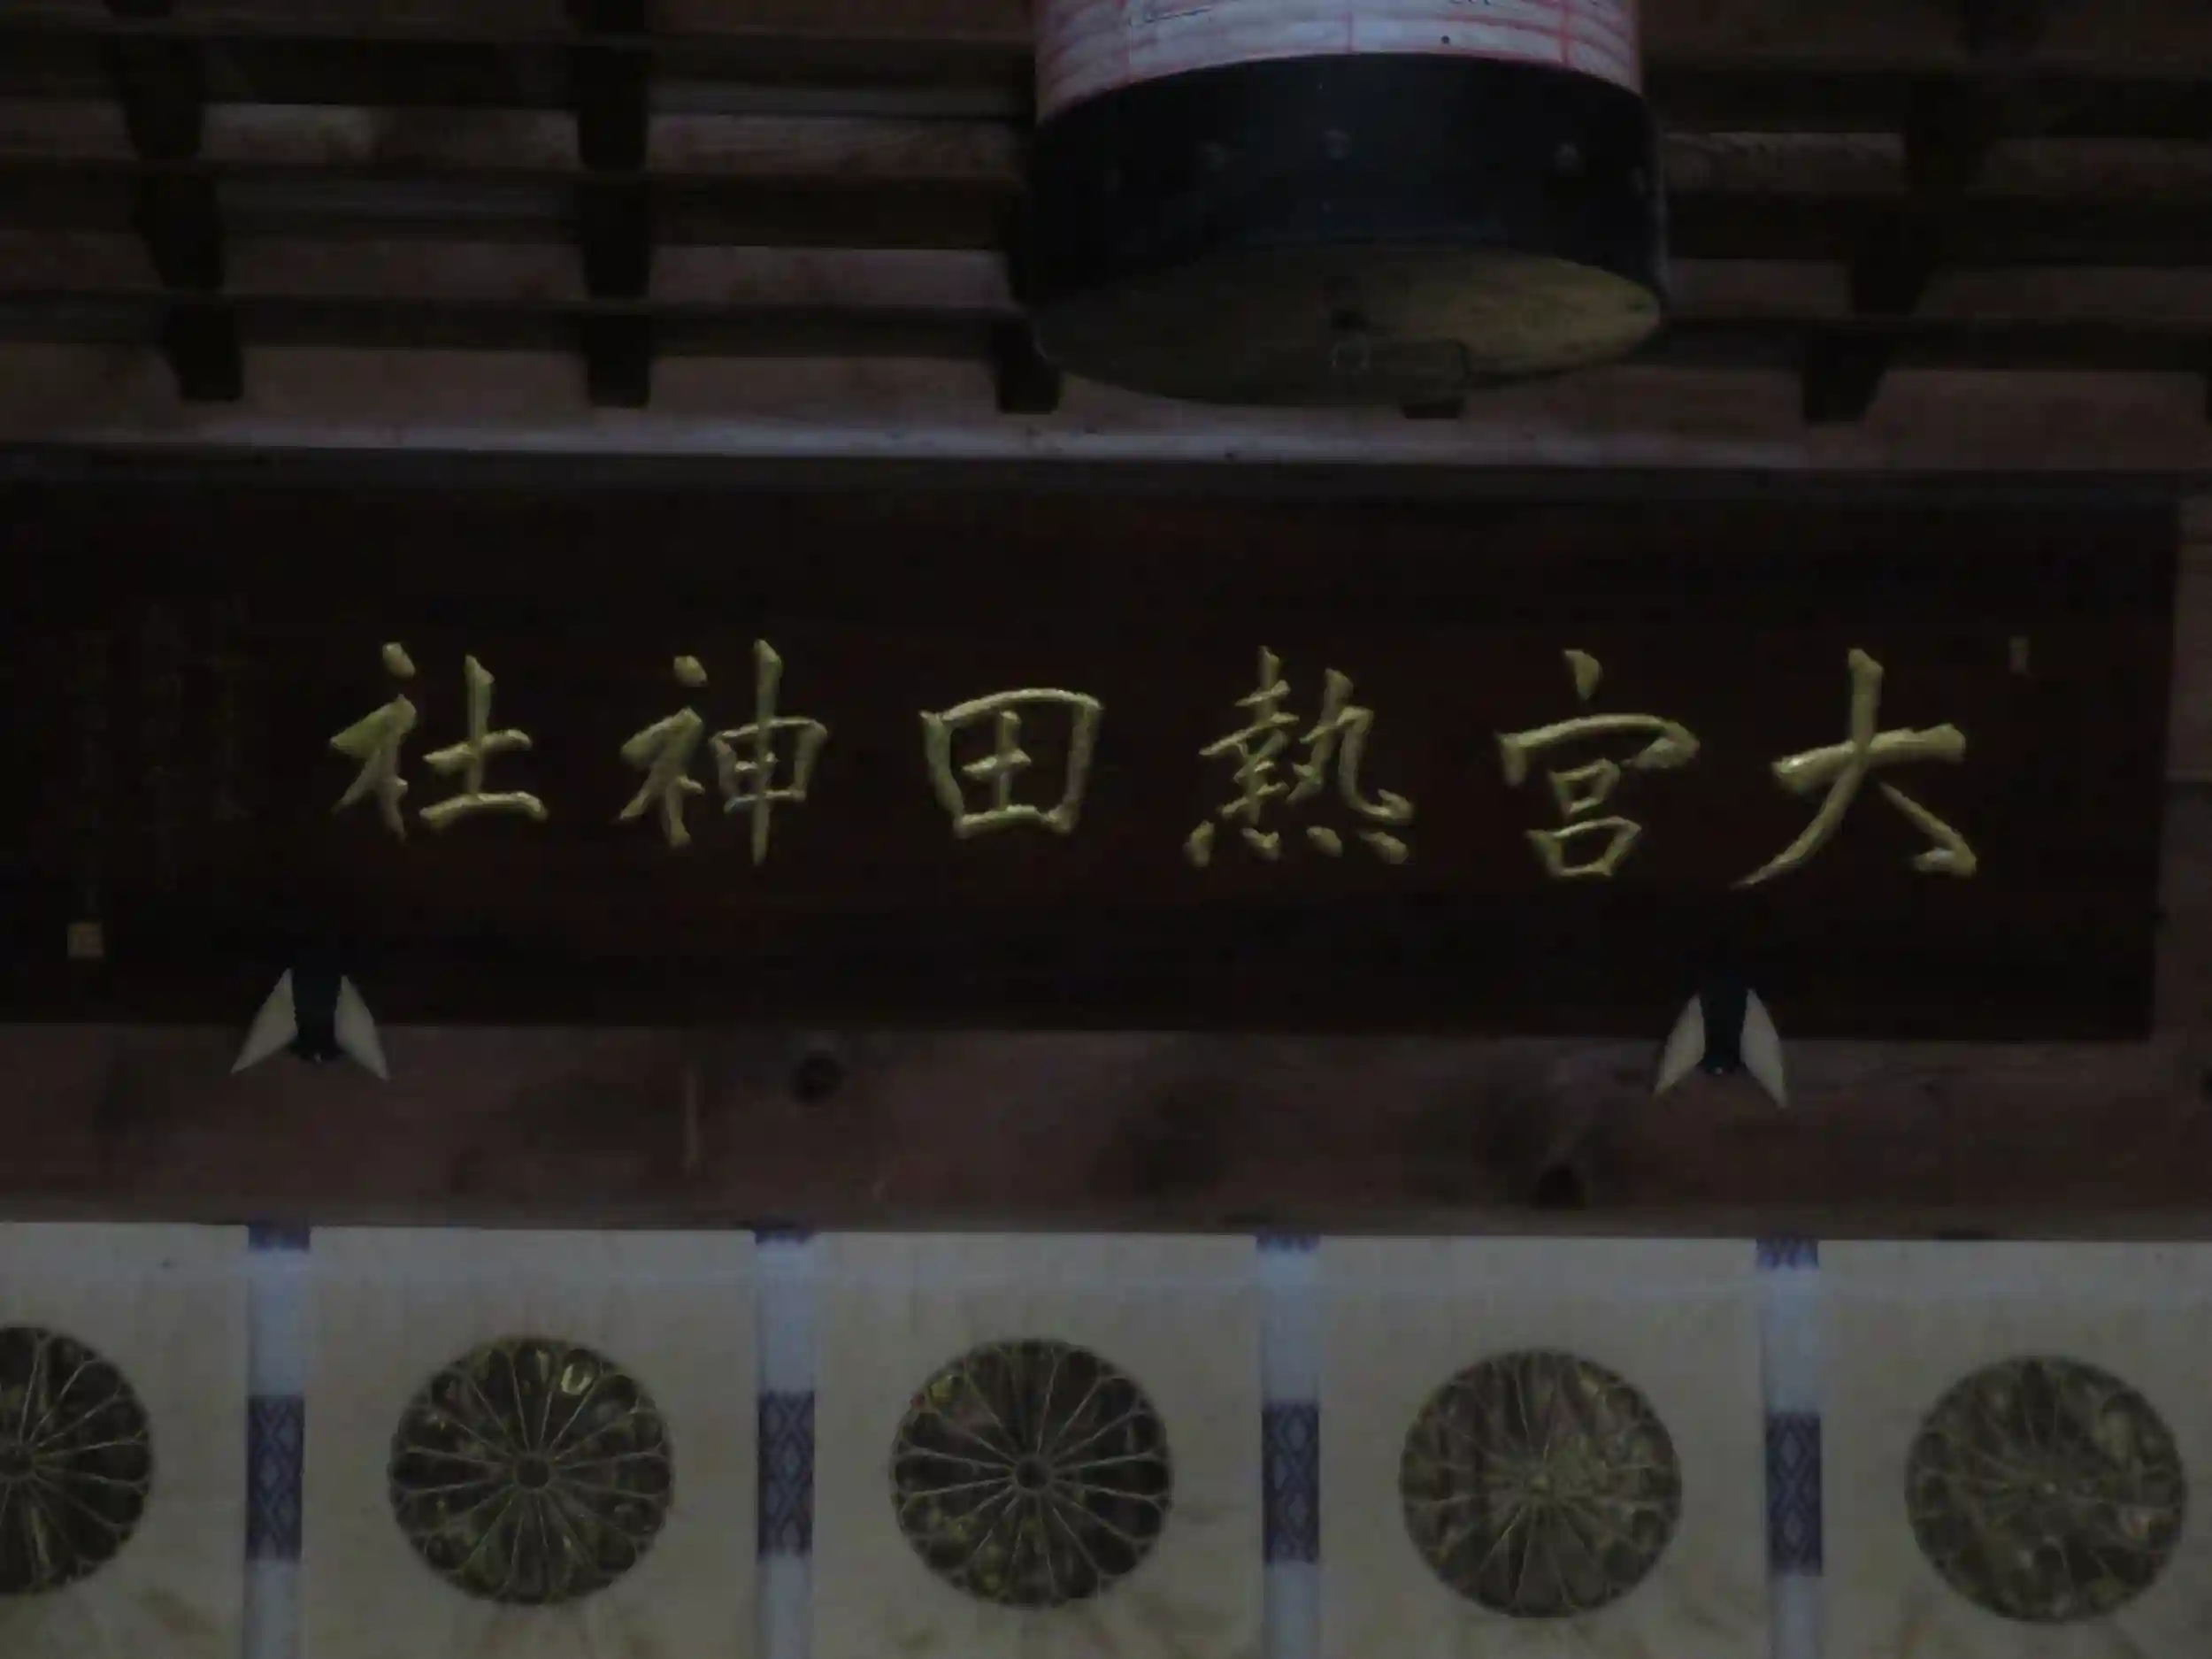 大宮熱田神社